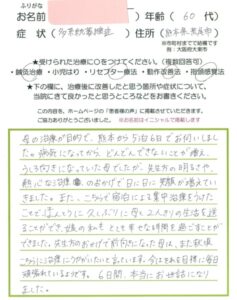 ふりがな
お名前 年齢( 60 代)
症状(多系統萎縮症)住所(熊本県荒尾市)
※市町村までで結構です
例:大阪府大東市
★受けられた治療に○をつけてください。(複数回答可)
・鍼灸治療 ・小児はり ・リセプター療法 ・動作改善法 ・指談感覚法
★下の欄に、治療後に改善したと思う箇所や症状について、
当院にきて良かったと思うところなどをお書きください。
ご記入ありがとうございます。 ※お名前はイニシャルで掲載します
母の治療が目的で、熊本から5泊6日でお伺いしまし
た。病気になってから、どんどんできないことが増え、
うしろ向きになっていた母でしたが、先生方の明るさや、
熱心な治療のおかげで日に日に笑顔が増えてい
きました。また、こちらで宿泊による集中治療をうけた
ことでほんとうに久しぶりに母と2人きりの生活を送
ることができ、娘の私もとても幸せな時間を過ごすことが
できました。先生方のおかげで前向きになった母は、また秋頃
こちらに治療にうかがいたいと言っています。今はそれを目標に毎日
頑張れているようです。6日間、本当にお世話になり
ました。